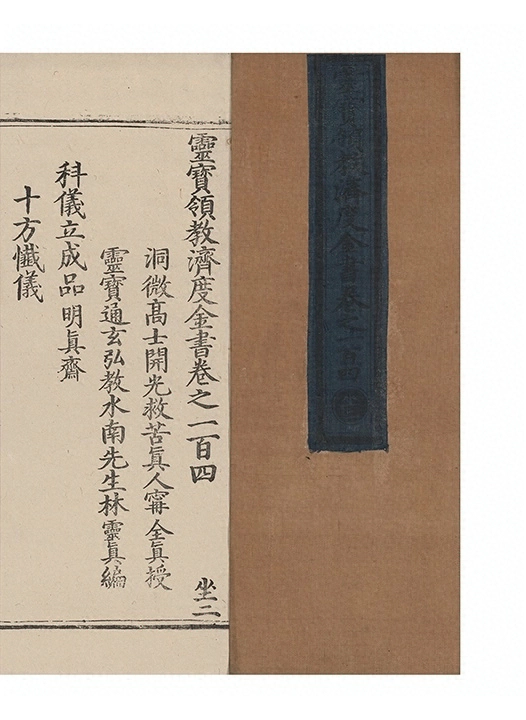 靈寶領教濟度金書卷之一百四
靈寶領教濟度金書卷之一百四
坐二
洞微髙士開光救苦眞人甯全眞授
靈寶通玄弘教水南先生林靈眞編
科儀立成品明眞齋
十方懺儀